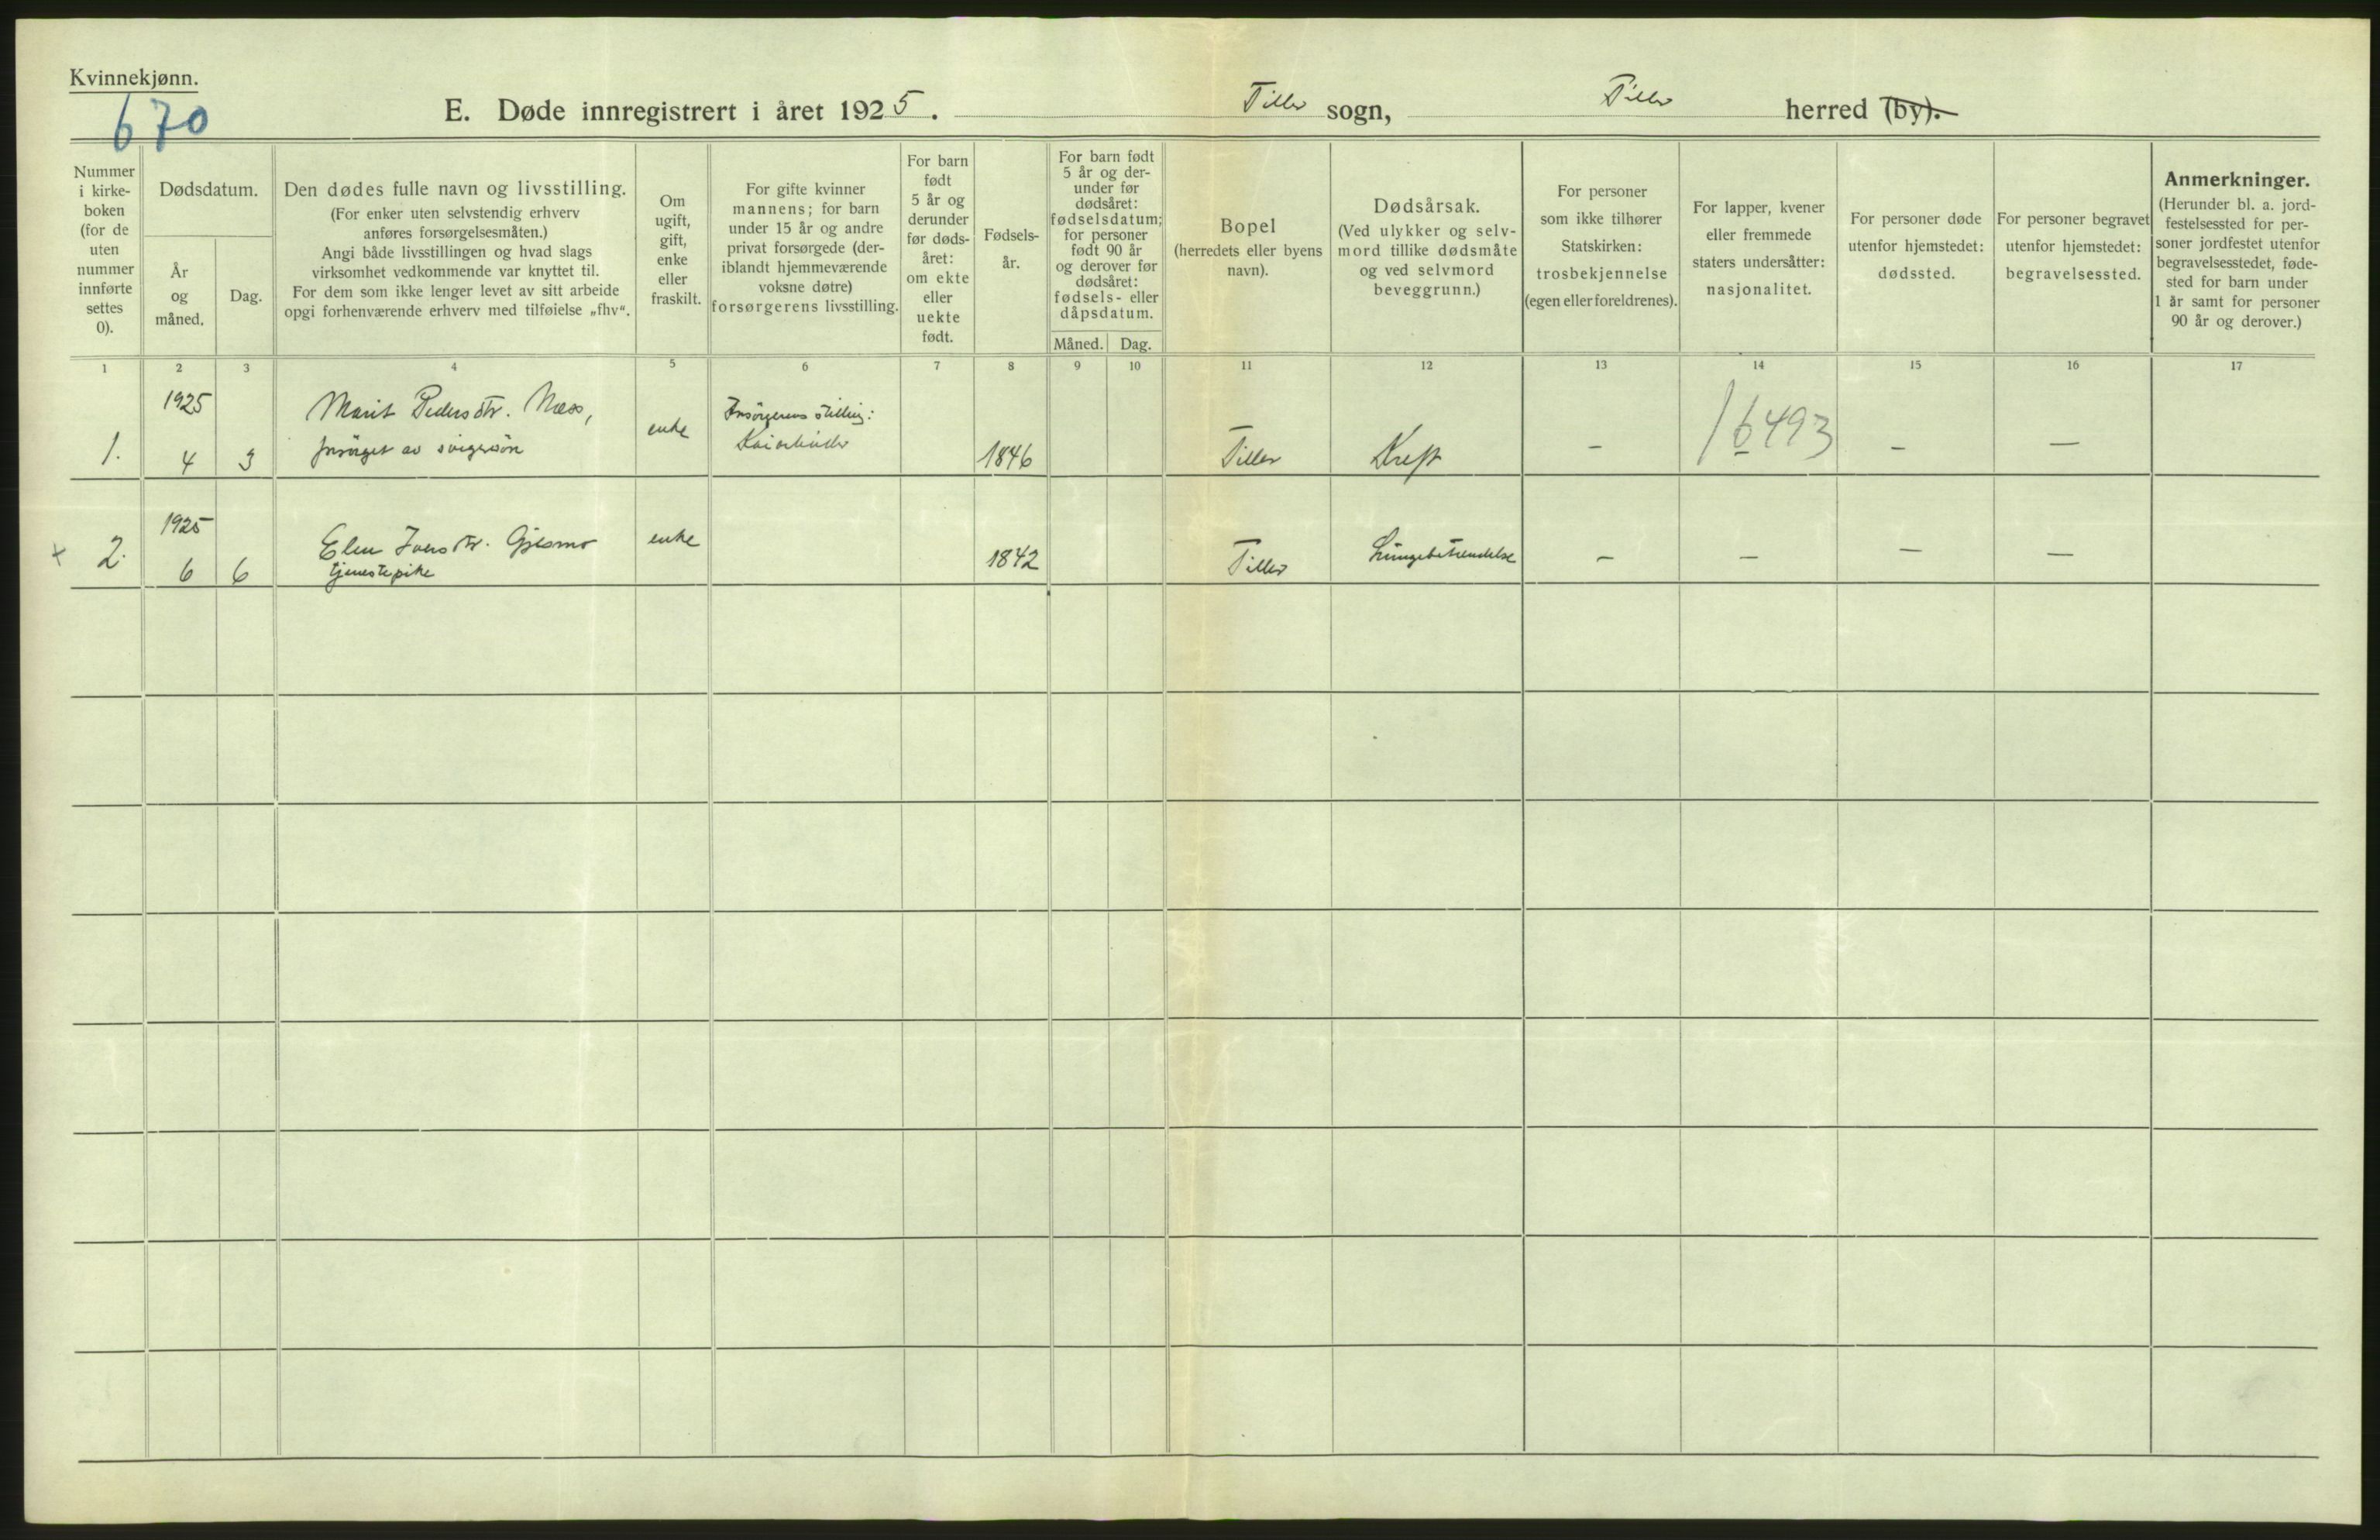 Kvinnekjønn.
670
E. Døde innregistrert i året 1925. Tiller sogn, Tiller herred (by).
Nummer i kirke-boken (for de uten nummer innførte settes 0).
Dødsdatum.
År og måned.
Dag.
Den dødes fulle navn og livsstilling.
(For enker uten selvstendig erhverv
anføres forsørgelsesmåten.)
Angi både livsstillingen og hvad slags
virksomhet vedkommende var knyttet til.
For dem som ikke lenger levet av sitt arbeide
opgi forhenværende erhverv med tilføielse „fhv“.
Om
ugift,
gift,
enke
eller
fraskilt.
For gifte kvinner
mannens; for barn
under 15 år og andre
privat forsørgede (der-
iblandt hjemmeværende
voksne døtre)
forsørgerens livsstilling.
For barn
født
5 år og
derunder
før døds-
året:
om ekte
eller
uekte
født.
Fødsels-
år.
For barn født
5 år og der-
under før
dødsåret:
fødselsdatum;
for personer
født 90 år
og derover før
dødsåret:
fødsels- eller
dåpsdatum.
Måned. Dag.
Bopel
(herredets eller byens
navn).
Dødsårsak.
(Ved ulykker og selv-
mord tillike dødsmåte
og ved selvmord
beveggrunn.)
For personer
som ikke tilhører
Statskirken:
trosbekjennelse
(egen eller foreldrenes).
For lapper, kvener
eller fremmede
staters undersåtter:
nasjonalitet.
For personer døde
utenfor hjemstedet:
dødssted.
For personer begravet
utenfor hjemstedet:
begravelsessted.
Anmerkninger.
(Herunder bl. a. jord-
festelsessted for per-
soner jordfestet utenfor
begravelsesstedet, føde-
sted for barn under
1 år samt for personer
90 år og derover.)
1 2 3 4 5 6 7 8 9 10 11 12 13 14 15 16 17
1925
1. 4 3
Marit Pedersdtr. Næss,
forsørget av svigersøn
enke
Forsørgerens stilling:
1846
Tiller
Kreft
–
16493
–
–
1925
+ 2. 6 6
Elen Iversdtr. Gjesmo
tjenestepike
enke
1842
Tiller
Lungebetændelse
–
–
–
–